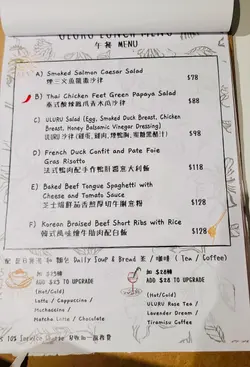 ULURU LUNCH MENU
午餐 MENU
A) Smoked Salmon Caesar Salad
煙三文魚凱撒沙律
$78
B) Thai Chicken Feet Green Papaya Salad
泰式酸辣鳳爪青木瓜沙律
$88
C) ULURU Salad (Egg, Smoked Duck Breast, Chicken
Breast, Honey Balsamic Vinegar Dressing)
$98
D) French Duck Confit and Pate Foie
Gras Risotto
法式鴨肉配手作鴨肝醬意大利飯
$118
E) Baked Beef Tongue Spaghetti with
Cheese and Tomato Sauce
$128
F) Korean Braised Beef Short Ribs with Rice
韓式風味燴牛肋肉配白飯
$128
Daily Soup & Bread 茶 / 咖啡 ( Tea / Coffee)
ADD $25 TO UPGRADE
(Hot/Cold)
Latte / Cappuccino /
Mochaccino
Matcha Latte / Chocolate
加 $28轉
ADD $28 TO UPGRADE
(Hot/Cold)
ULURU Rose Tea /
Lavender Dream /
Tiramisu Coffee
10% Service Charge 加一服務費